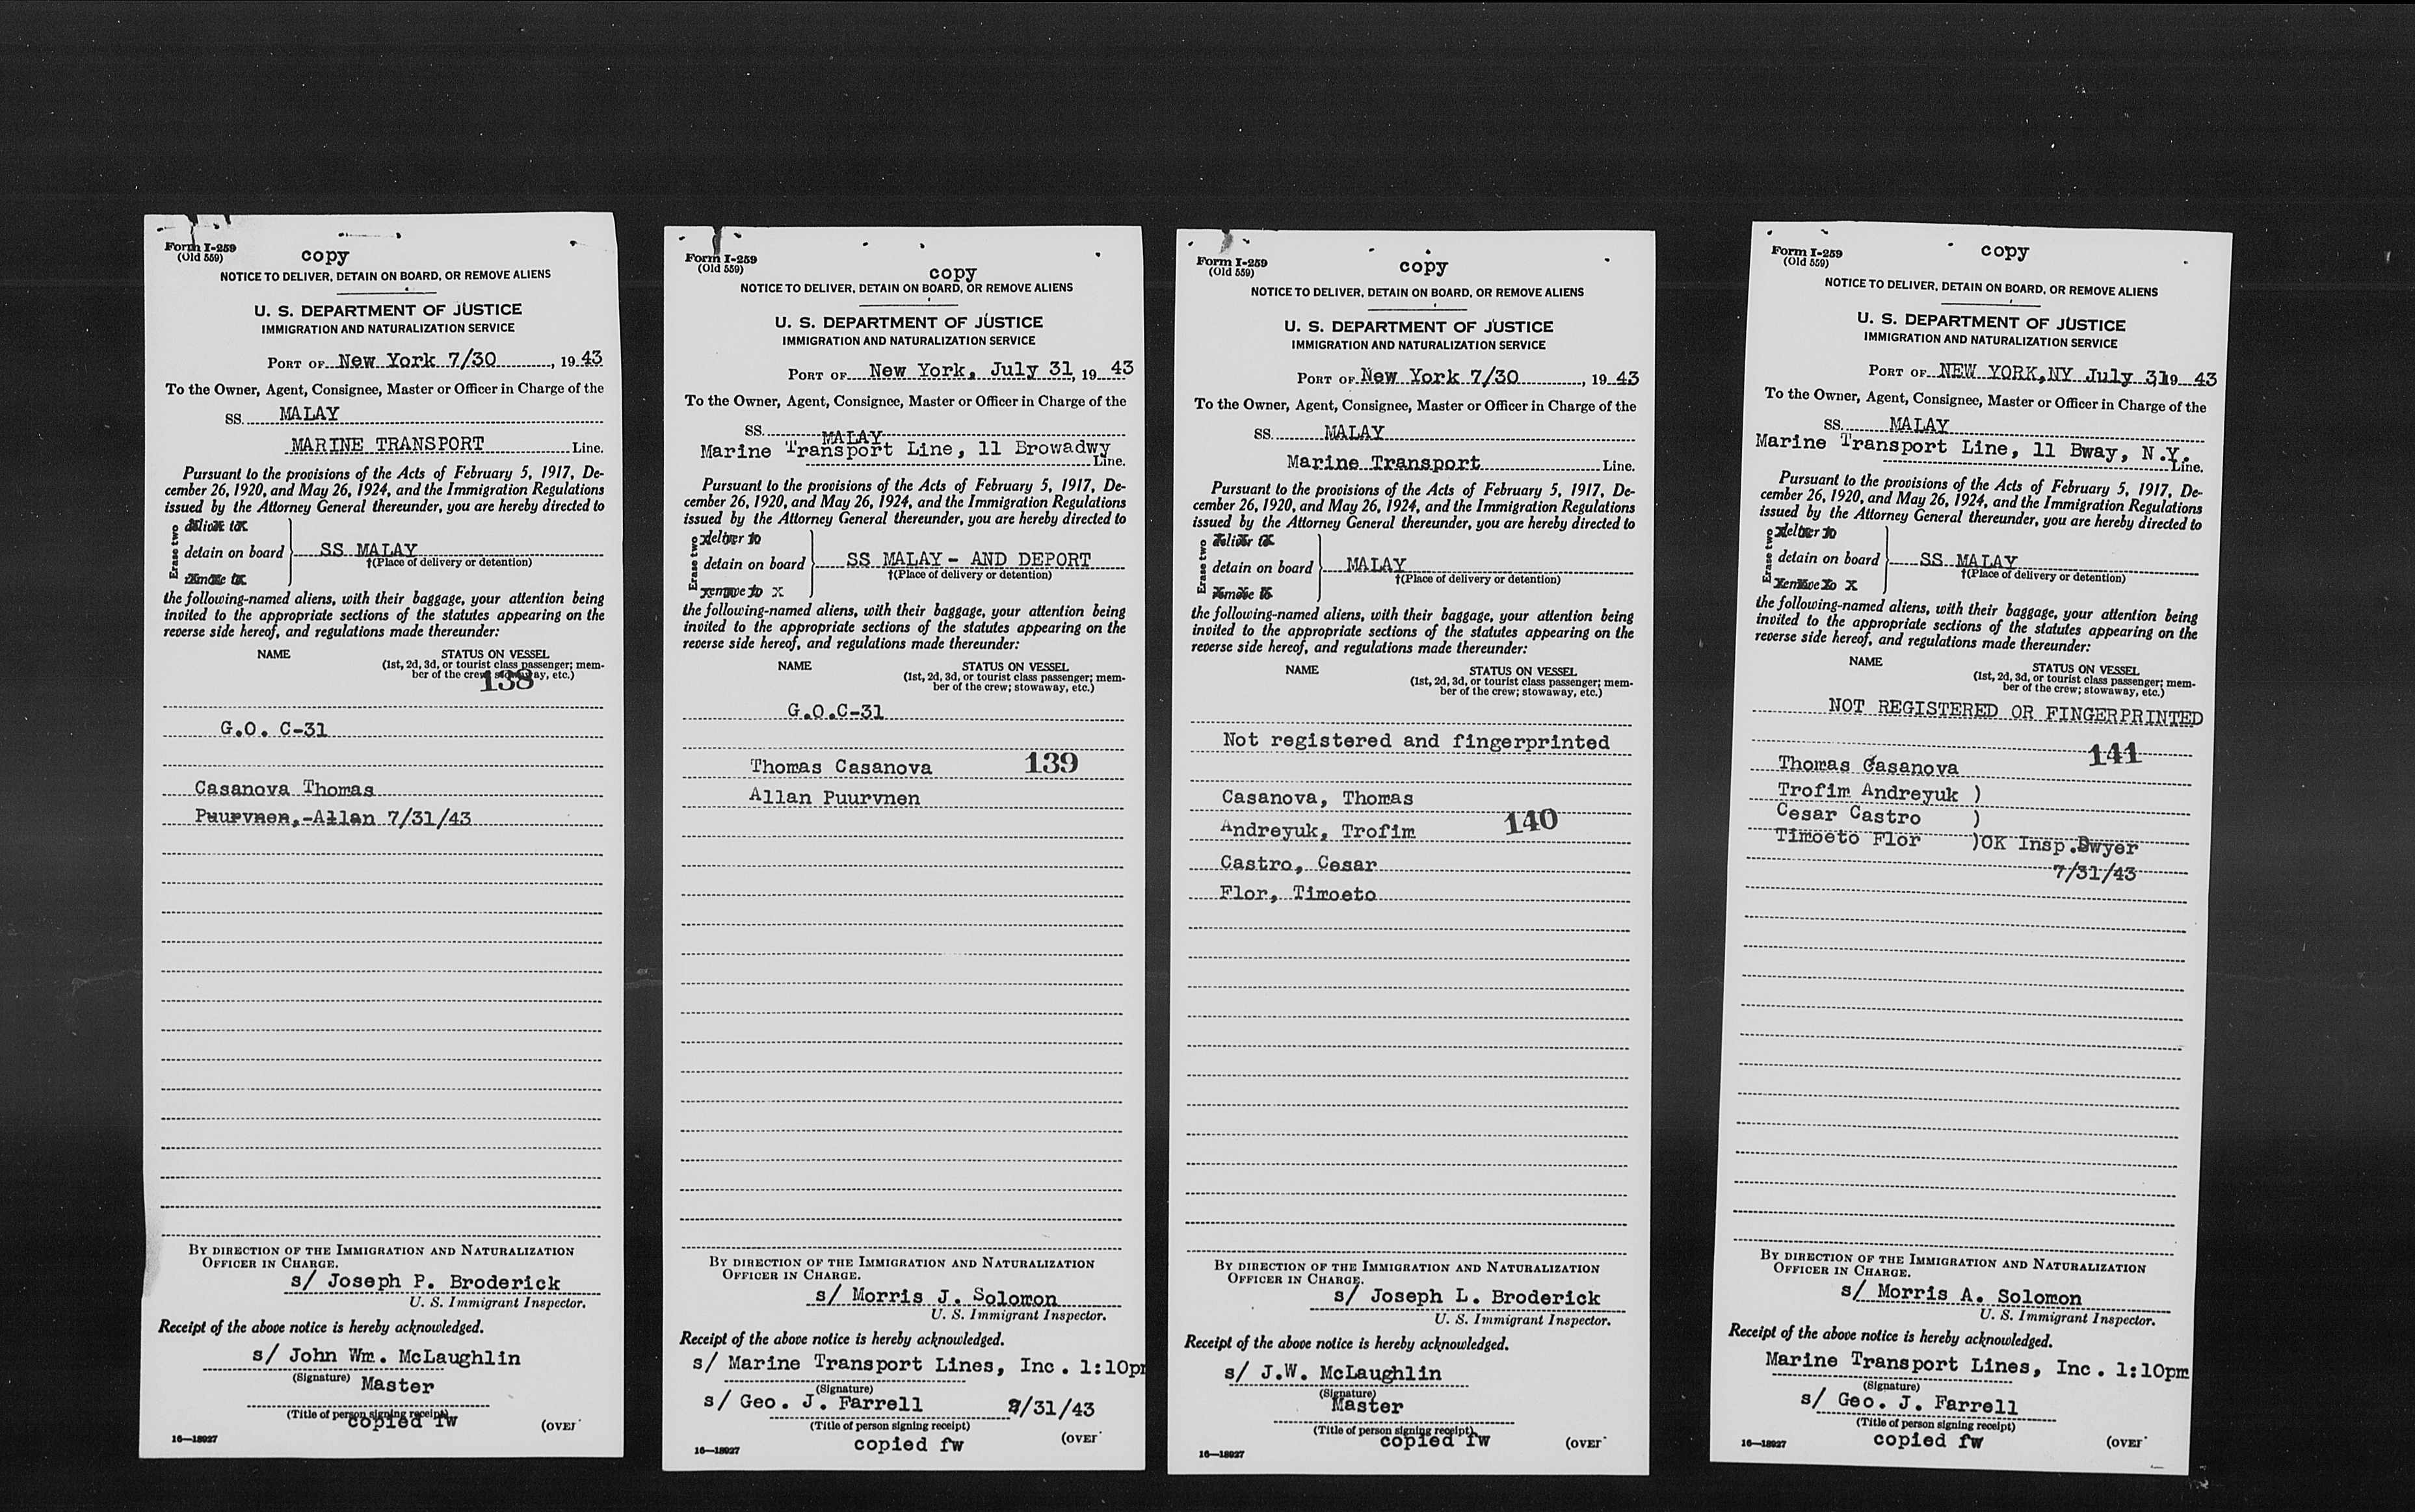 Form I-259
(Old 559)
copy
NOTICE TO DELIVER, DETAIN ON BOARD, OR REMOVE ALIENS
U. S. DEPARTMENT OF JUSTICE
IMMIGRATION AND NATURALIZATION SERVICE
PORT OF New York 7/30, 19 43
To the Owner, Agent, Consignee, Master or Officer in Charge of the
SS. MALAY
MARINE TRANSPORT Line.
Pursuant to the provisions of the Acts of February 5, 1917, De-
cember 26, 1920, and May 26, 1924, and the Immigration Regulations
issued by the Attorney General thereunder, you are hereby directed to
Erase two
deliver to
detain on board SS MALAY
†(Place of delivery or detention)
remove to
the following-named aliens, with their baggage, your attention being
invited to the appropriate sections of the statutes appearing on the
reverse side hereof, and regulations made thereunder:
NAME STATUS ON VESSEL
(1st, 2d, 3d, or tourist class passenger; mem-
ber of the crew; stowaway, etc.)
138
G.O. C-31
Casanova Thomas
Puurvnen,-Allan 7/31/43
BY DIRECTION OF THE IMMIGRATION AND NATURALIZATION
OFFICER IN CHARGE.
s/ Joseph P. Broderick
U. S. Immigrant Inspector.
Receipt of the above notice is hereby acknowledged.
s/ John Wm. McLaughlin
(Signature) Master
(Title of person signing receipt)
copied fw
16—18927 (OVER
Form I-259
(Old 559)
copy
NOTICE TO DELIVER, DETAIN ON BOARD, OR REMOVE ALIENS
U. S. DEPARTMENT OF JUSTICE
IMMIGRATION AND NATURALIZATION SERVICE
PORT OF New York, July 31, 19 43
To the Owner, Agent, Consignee, Master or Officer in Charge of the
SS. MALAY
Marine Transport Line, 11 Browadwy
Line.
Pursuant to the provisions of the Acts of February 5, 1917, De-
cember 26, 1920, and May 26, 1924, and the Immigration Regulations
issued by the Attorney General thereunder, you are hereby directed to
Erase two
deliver to
detain on board SS MALAY - AND DEPORT
†(Place of delivery or detention)
remove to X
the following-named aliens, with their baggage, your attention being
invited to the appropriate sections of the statutes appearing on the
reverse side hereof, and regulations made thereunder:
NAME STATUS ON VESSEL
(1st, 2d, 3d, or tourist class passenger; mem-
ber of the crew; stowaway, etc.)
G.O.C-31
Thomas Casanova 139
Allan Puurvnen
BY DIRECTION OF THE IMMIGRATION AND NATURALIZATION
OFFICER IN CHARGE.
s/ Morris J. Solomon
U. S. Immigrant Inspector.
Receipt of the above notice is hereby acknowledged.
s/ Marine Transport Lines, Inc. 1:10pm
(Signature)
s/ Geo. J. Farrell 7/31/43
(Title of person signing receipt)
copied fw
16—18927 (OVER
Form I-259
(Old 559)
copy
NOTICE TO DELIVER, DETAIN ON BOARD, OR REMOVE ALIENS
U. S. DEPARTMENT OF JUSTICE
IMMIGRATION AND NATURALIZATION SERVICE
PORT OF New York 7/30, 19 43
To the Owner, Agent, Consignee, Master or Officer in Charge of the
SS. MALAY
Marine Transport Line.
Pursuant to the provisions of the Acts of February 5, 1917, De-
cember 26, 1920, and May 26, 1924, and the Immigration Regulations
issued by the Attorney General thereunder, you are hereby directed to
Erase two
deliver to
detain on board MALAY
†(Place of delivery or detention)
remove to
the following-named aliens, with their baggage, your attention being
invited to the appropriate sections of the statutes appearing on the
reverse side hereof, and regulations made thereunder:
NAME STATUS ON VESSEL
(1st, 2d, 3d, or tourist class passenger; mem-
ber of the crew; stowaway, etc.)
Not registered and fingerprinted
Casanova, Thomas
Andreyuk, Trofim 140
Castro, Cesar
Flor, Timoeto
BY DIRECTION OF THE IMMIGRATION AND NATURALIZATION
OFFICER IN CHARGE.
s/ Joseph L. Broderick
U. S. Immigrant Inspector.
Receipt of the above notice is hereby acknowledged.
s/ J.W. McLaughlin
(Signature)
Master
(Title of person signing receipt)
copied fw
16—18927 (OVER
Form I-259
(Old 559)
copy
NOTICE TO DELIVER, DETAIN ON BOARD, OR REMOVE ALIENS
U. S. DEPARTMENT OF JUSTICE
IMMIGRATION AND NATURALIZATION SERVICE
PORT OF NEW YORK,NY July 31, 19 43
To the Owner, Agent, Consignee, Master or Officer in Charge of the
SS. MALAY
Marine Transport Line, 11 Bway, N.Y.
Line.
Pursuant to the provisions of the Acts of February 5, 1917, De-
cember 26, 1920, and May 26, 1924, and the Immigration Regulations
issued by the Attorney General thereunder, you are hereby directed to
Erase two
deliver to
detain on board SS MALAY
†(Place of delivery or detention)
remove to X
the following-named aliens, with their baggage, your attention being
invited to the appropriate sections of the statutes appearing on the
reverse side hereof, and regulations made thereunder:
NAME STATUS ON VESSEL
(1st, 2d, 3d, or tourist class passenger; mem-
ber of the crew; stowaway, etc.)
NOT REGISTERED OR FINGERPRINTED
141
Thomas Casanova
Trofim Andreyuk )
Cesar Castro )
Timoeto Flor )OK Insp.Dwyer
7/31/43
BY DIRECTION OF THE IMMIGRATION AND NATURALIZATION
OFFICER IN CHARGE.
s/ Morris A. Solomon
U. S. Immigrant Inspector.
Receipt of the above notice is hereby acknowledged.
Marine Transport Lines, Inc. 1:10pm
(Signature)
s/ Geo. J. Farrell
(Title of person signing receipt)
copied fw
16—18927 (OVER